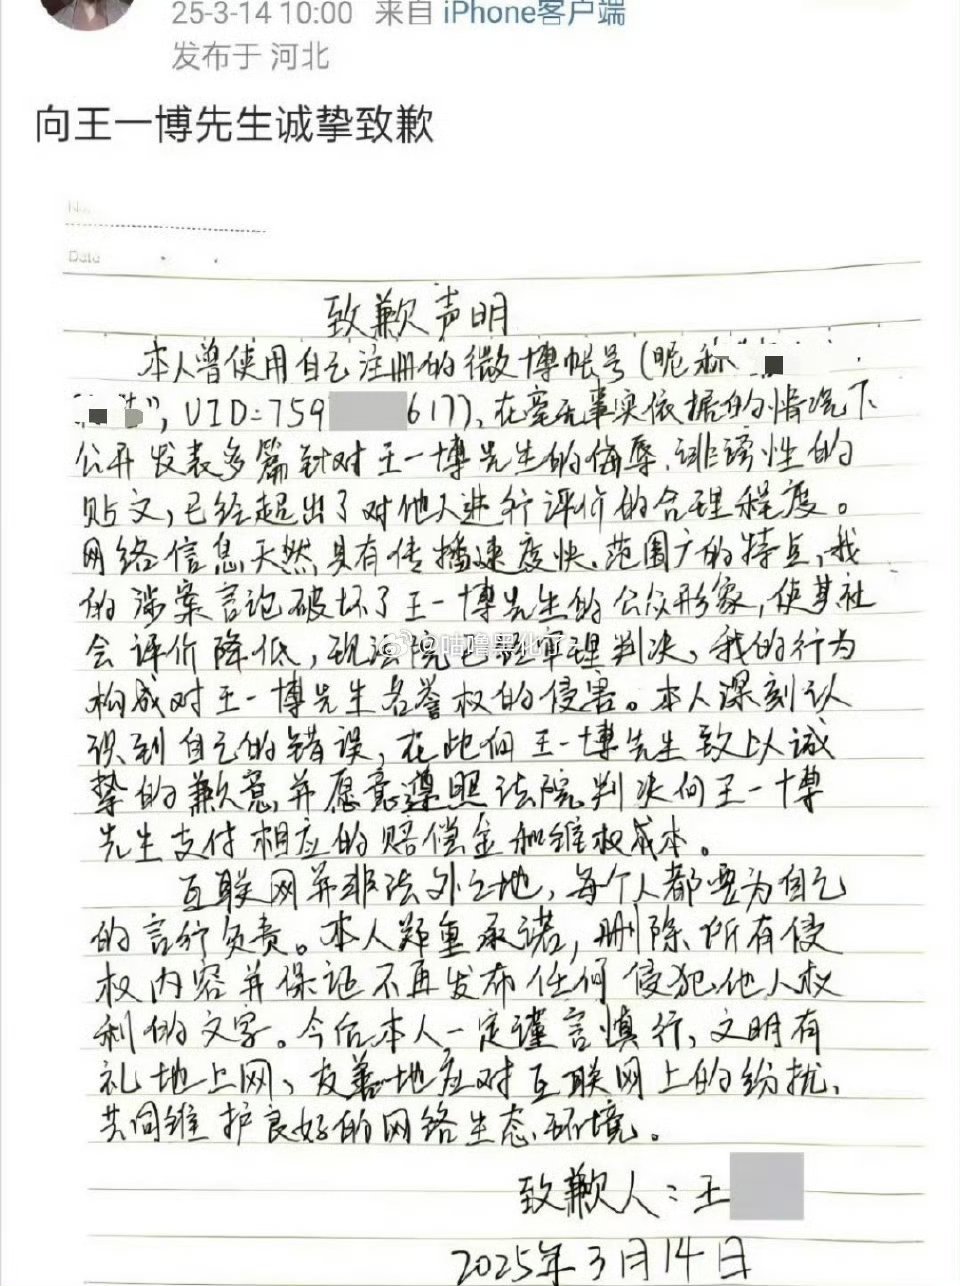 25-3-14 10:00 来自 iPhone客户端
发布于 河北
向王一博先生诚挚致歉
Date
致歉声明
本人曾使用自己注册的微博帐号(昵称"
",UID=759 617),在毫无事实依据的情况下
公开发表多篇针对王一博先生的侮辱、诽谤性的
贴文,已经超出了对他人进行评价的合理程度。
网络信息天然具有传播速度快、范围广的特点,我
的涉案言论破坏了王一博先生的公众形象,使其社
会评价降低,现法院已经审理判决,我的行为
@咕噜黑化了
构成对王一博先生名誉权的侵害。本人深刻认
识到自己的错误,在此向王一博先生致以诚
挚的歉意,并愿意遵照法院判决向王一博
先生支付相应的赔偿金和维权成本。
互联网并非法外之地,每个人都要为自己
的言行负责。本人郑重承诺,删除所有侵
权内容并保证不再发布任何侵犯他人权
利的文字。今后本人一定谨言慎行,文明有
礼地上网、友善地应对互联网上的纷扰,
共同维护良好的网络生态环境。
致歉人:王
2025年3月14日